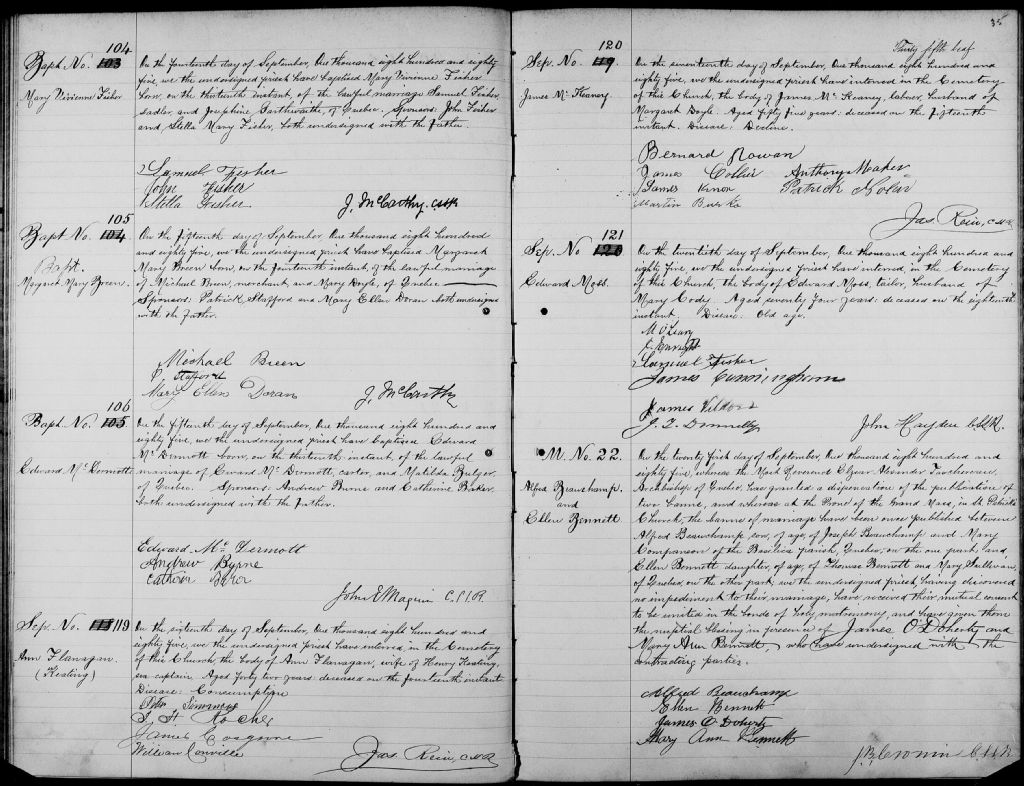 104
Bapt. No. 103
Mary Vivienne Fisher
On the fourteenth day of September, One thousand eight hundred and eighty
five, we the undersigned priest have baptised Mary Vivienne Fisher
born, on the thirteenth instant, of the lawful marriage Samuel Fisher,
sadler, and Josephine Garthwaite, of Quebec. Sponsors: John Fisher
and Stella Mary Fisher, both undersigned with the father.
Samuel Fisher
John Fisher
Stella Fisher
J. McCarthy, CSSR
105
Bapt No. 104
Bapt.
Margaret Mary Breen.
On the fifteenth day of September, One thousand eight hundred
and eighty five, we the undersigned priest have baptised Margaret
Mary Breen born, on the fourteenth instant, of the lawful marriage
of Michael Breen, merchant, and Mary Doyle, of Quebec
Sponsors: Patrick Stafford and Mary Ellen Doran both undersigned
with the father.
Michael Breen
P Stafford
Mary Ellen Doran
J. McCarthy
106
Bapt. No. 105
Edward Mc Dermott
On the fifteenth day of September, One thousand eight hundred and
eighty five, we the undersigned priest have baptised Edward
Mc Dermott born, on the thirteenth instant of the lawful
marriage of Edward Mc Dermott, carter, and Matilda
of Quebec. Sponsors: Andrew Burne and Catherine Baker,
both undersigned with the father.
Edward Mc Dermott
Andrew Byrne
John E Maguire C.SS.R.
Sep. No. 118 119
Ann Flanagan.
(Keating)
On the sixteenth day of September, One thousand eight hundred and
eighty five, we the undersigned priest have interred, in the Cemetery
of this Church, the body of Ann Flanagan, wife of Henry Keating,
sea captain. Aged forty two years: deceased on the fourteenth instant
Disease: Consumption
James Cosgrove
William Conville
Jas. Rein, CSSR
35
Thirty fifth leaf
120
Sep. No. 119.
James Mc Keaney.
On the seventeenth day of September, One thousand eight hundred and
eighty five, we the undersigned priest have interred in the Cemetery
of this Church, the body of James Mc Keaney, laborer, husband of
Margaret Doyle. Aged fifty five years: deceased on the fifteenth
instant. Disease: Decline.
Bernard Rowan
James Collier Anthony Meaher
James Knox Patrick Nolan
Martin Burke
Jas. Rein, CSSR
121
Sep. No 120
Edward Moss.
On the twentieth day of September, One thousand eight hundred and
eighty five, we the undersigned priest have interred, in the Cemetery
of this Church, the body of Edward Moss, tailor, husband of
Mary Cody. Aged seventy four years: deceased on the eighteenth
instant. Disease: Old age.
M O'Leary
J. Enright
Samuel Fisher
James Cunningham
James
J. J. Donnelly
John Hayden CSSR.
M. No. 22.
Alfred Beauchamp.
and
Ellen Bennett
On the twenty first day of September, One thousand eight hundred and
eighty five, whereas the Most Reverend Elzear Alexander Taschereau,
Archbishop of Quebec has granted a dispensation of the publication of
two banns, and whereas at the Prone of the Grand Mass, in St. Patrick's
Church, the banns of marriage have been once published between
Alfred Beauchamp son, of age, of Joseph Beauchamp and Mary
Comparson of the Basilica parish, Quebec, on the one part, and
Ellen Bennett daughter, of age, of Thomas Bennett and Mary Sullivan,
of Quebec, on the other part, we the undersigned priest having discovered
no impediment to their marriage, have received their mutual consent
to be united in the bonds of holy matrimony, and have given them
the nuptial blessing in presence of James O'Doherty and
Mary Ann Bennett, who have undersigned with the
contracting parties.
Alfred Beauchamp
Ellen Bennett
James O Doherty
Mary Ann Bennett
J.B. Cronin C.SS.R